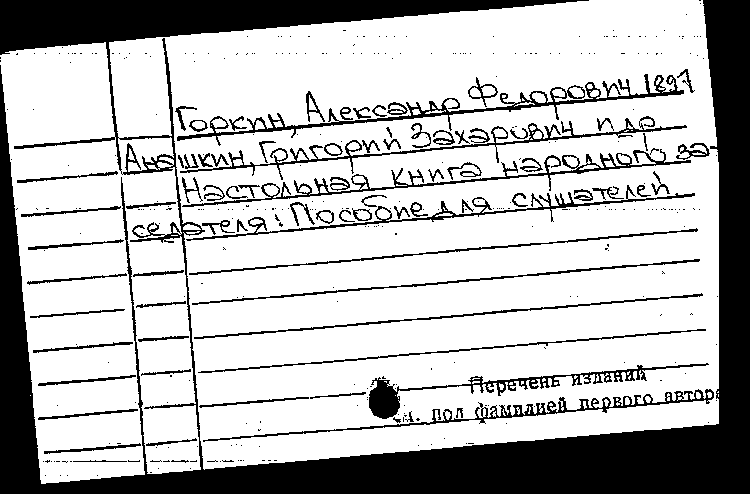 Горкин, Александр Федорович 1897
Анашкин, Григорий Захарович и др.
Настольная книга народного за-
седателя: Пособие для слушателей.
Перечень изданий
см. под фамилией первого автора